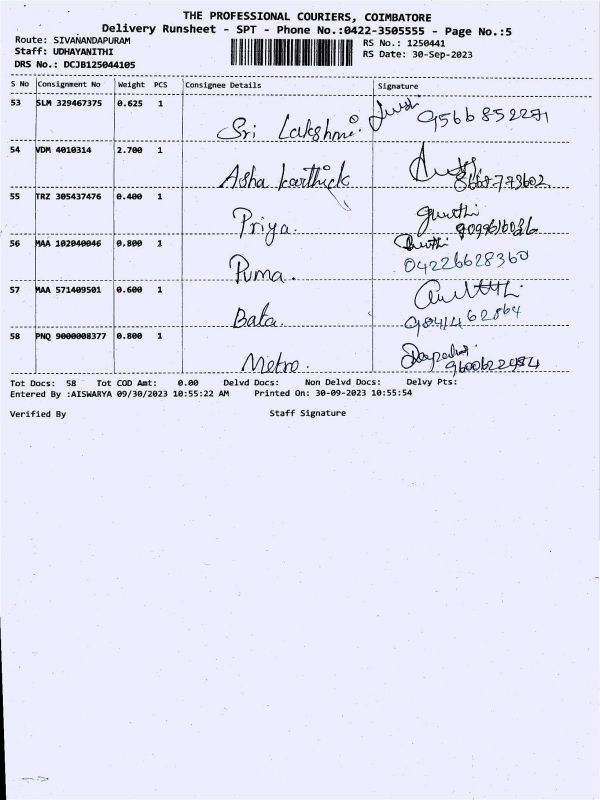 THE PROFESSIONAL COURIERS, COIMBATORE
Delivery Runsheet - SPT - Phone No.:0422-3505555 - Page No.:5
Route: SIVANANDAPURAM RS No.: 1250441
Staff: UDHAYANITHI RS Date: 30-Sep-2023
DRS No.: DCJB125044105
S No Consignment No Weight PCS Consignee Details Signature
53 SLM 329467375 0.625 1
Sri Lakshmi. 9566852271
54 VDM 4010314 2.700 1
Asha karthick
55 TRZ 305437476 0.400 1
Priya.
56 MAA 102040046 0.800 1
Puma. 04226628360
57 MAA 571409501 0.600 1
Bata.
58 PNQ 9000008377 0.800 1
Metro.
Tot Docs: 58 Tot COD Amt: 0.00 Delvd Docs: Non Delvd Docs: Delvy Pts:
Entered By :AISWARYA 09/30/2023 10:55:22 AM Printed On: 30-09-2023 10:55:54
Verified By Staff Signature